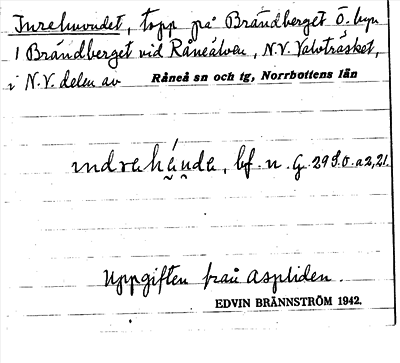 Inrehuvudet, topp på Brändberget Ö. byn
1 Brändberget vid Råneälven, N.V. Valvträsket,
i N.V. delen av Råneå sn och tg, Norrbottens län
indrehä́nda, bf. n. G. 29 S.O. a 2, 21.
Uppgiften från Aspliden.
EDVIN BRÄNNSTRÖM 1942.